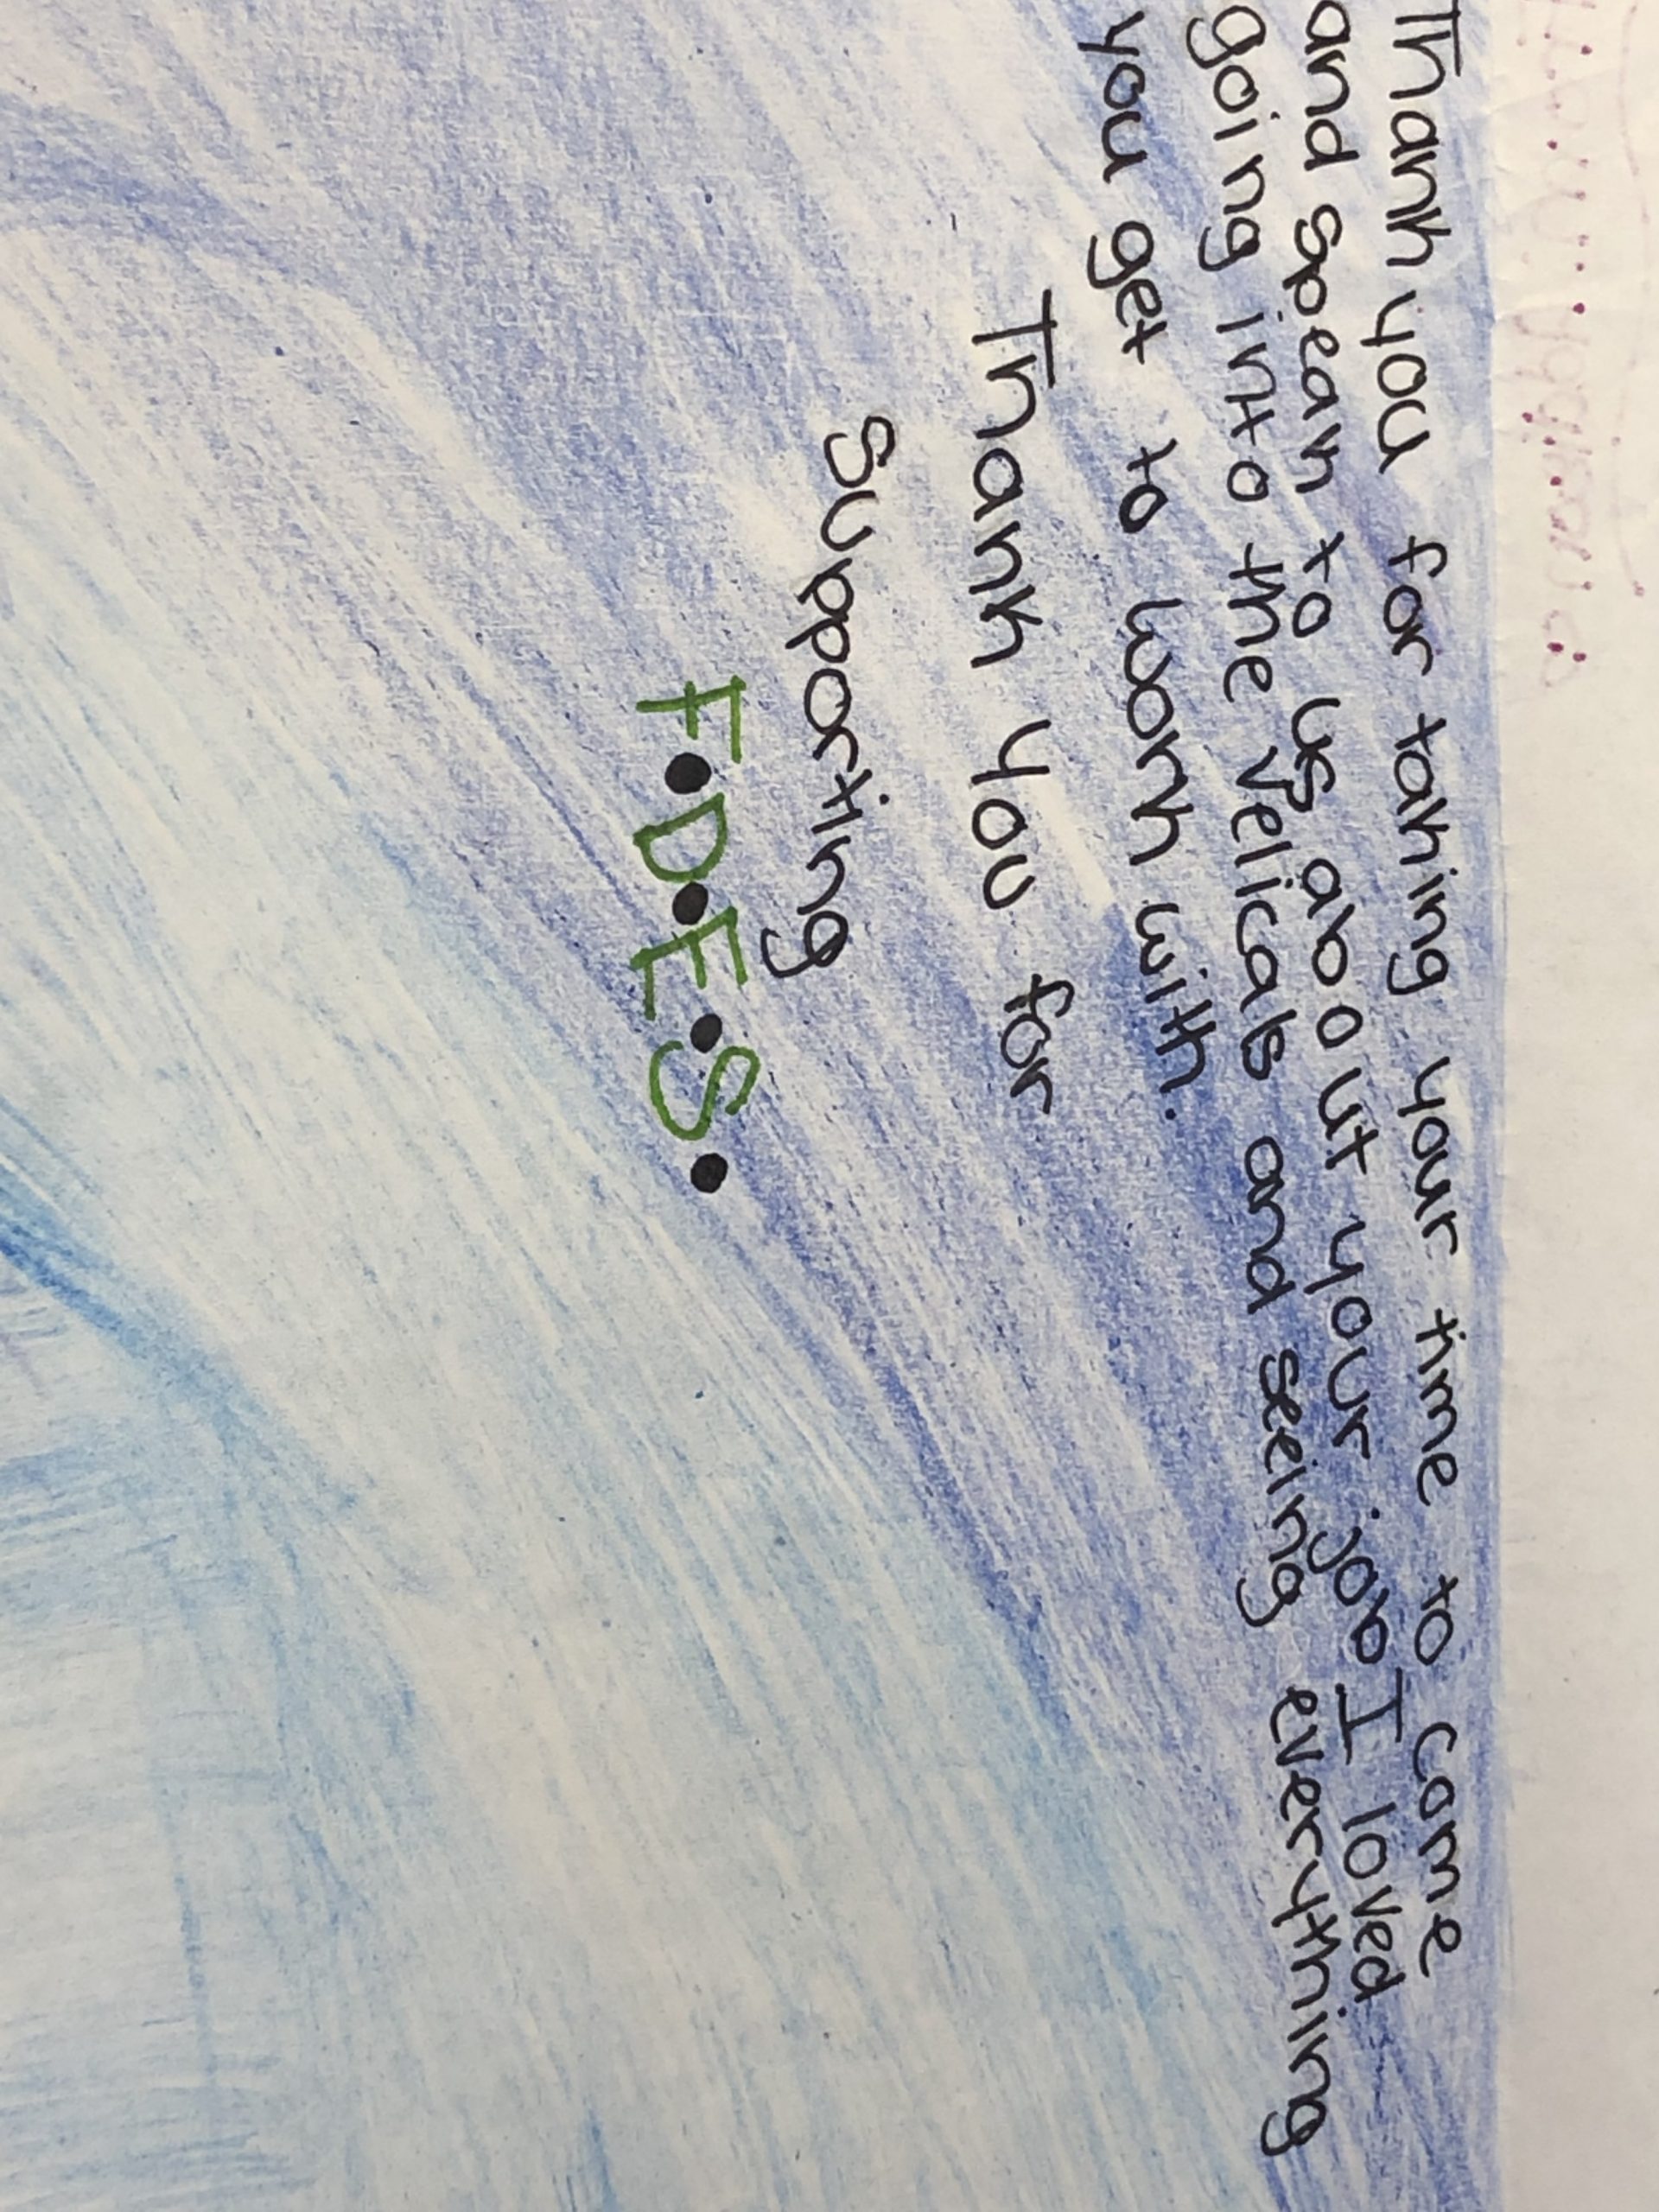 Thank you for taking your time to come
and speak to us about your job I loved
going into the velicals and seeing everything
you get to work with.
Thank you for
Supporting
F.D.E.S.